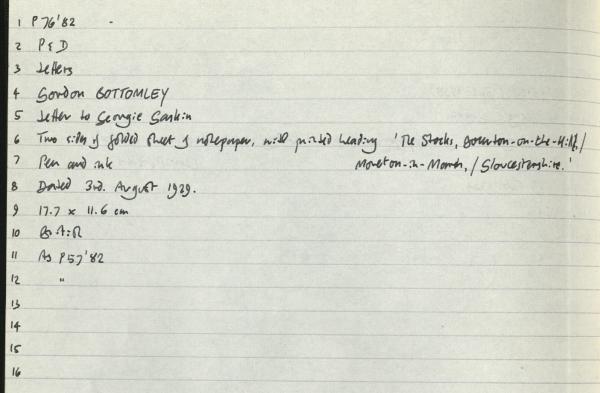 1 P76'82 -
2 P & D
3 Letters
4 Gordon BOTTOMLEY
5 Letter to Georgie Gaskin
6 Two sides of folded sheet of notepaper, with printed heading 'The Stocks, Bourton-on-the-Hill, /
7 Pen and ink Moreton-in-Marsh, / Gloucestershire.'
8 Dated 3rd. August 1929.
9 17.7 x 11.6 cm
10
11 As P57'82
12 "
13
14
15
16